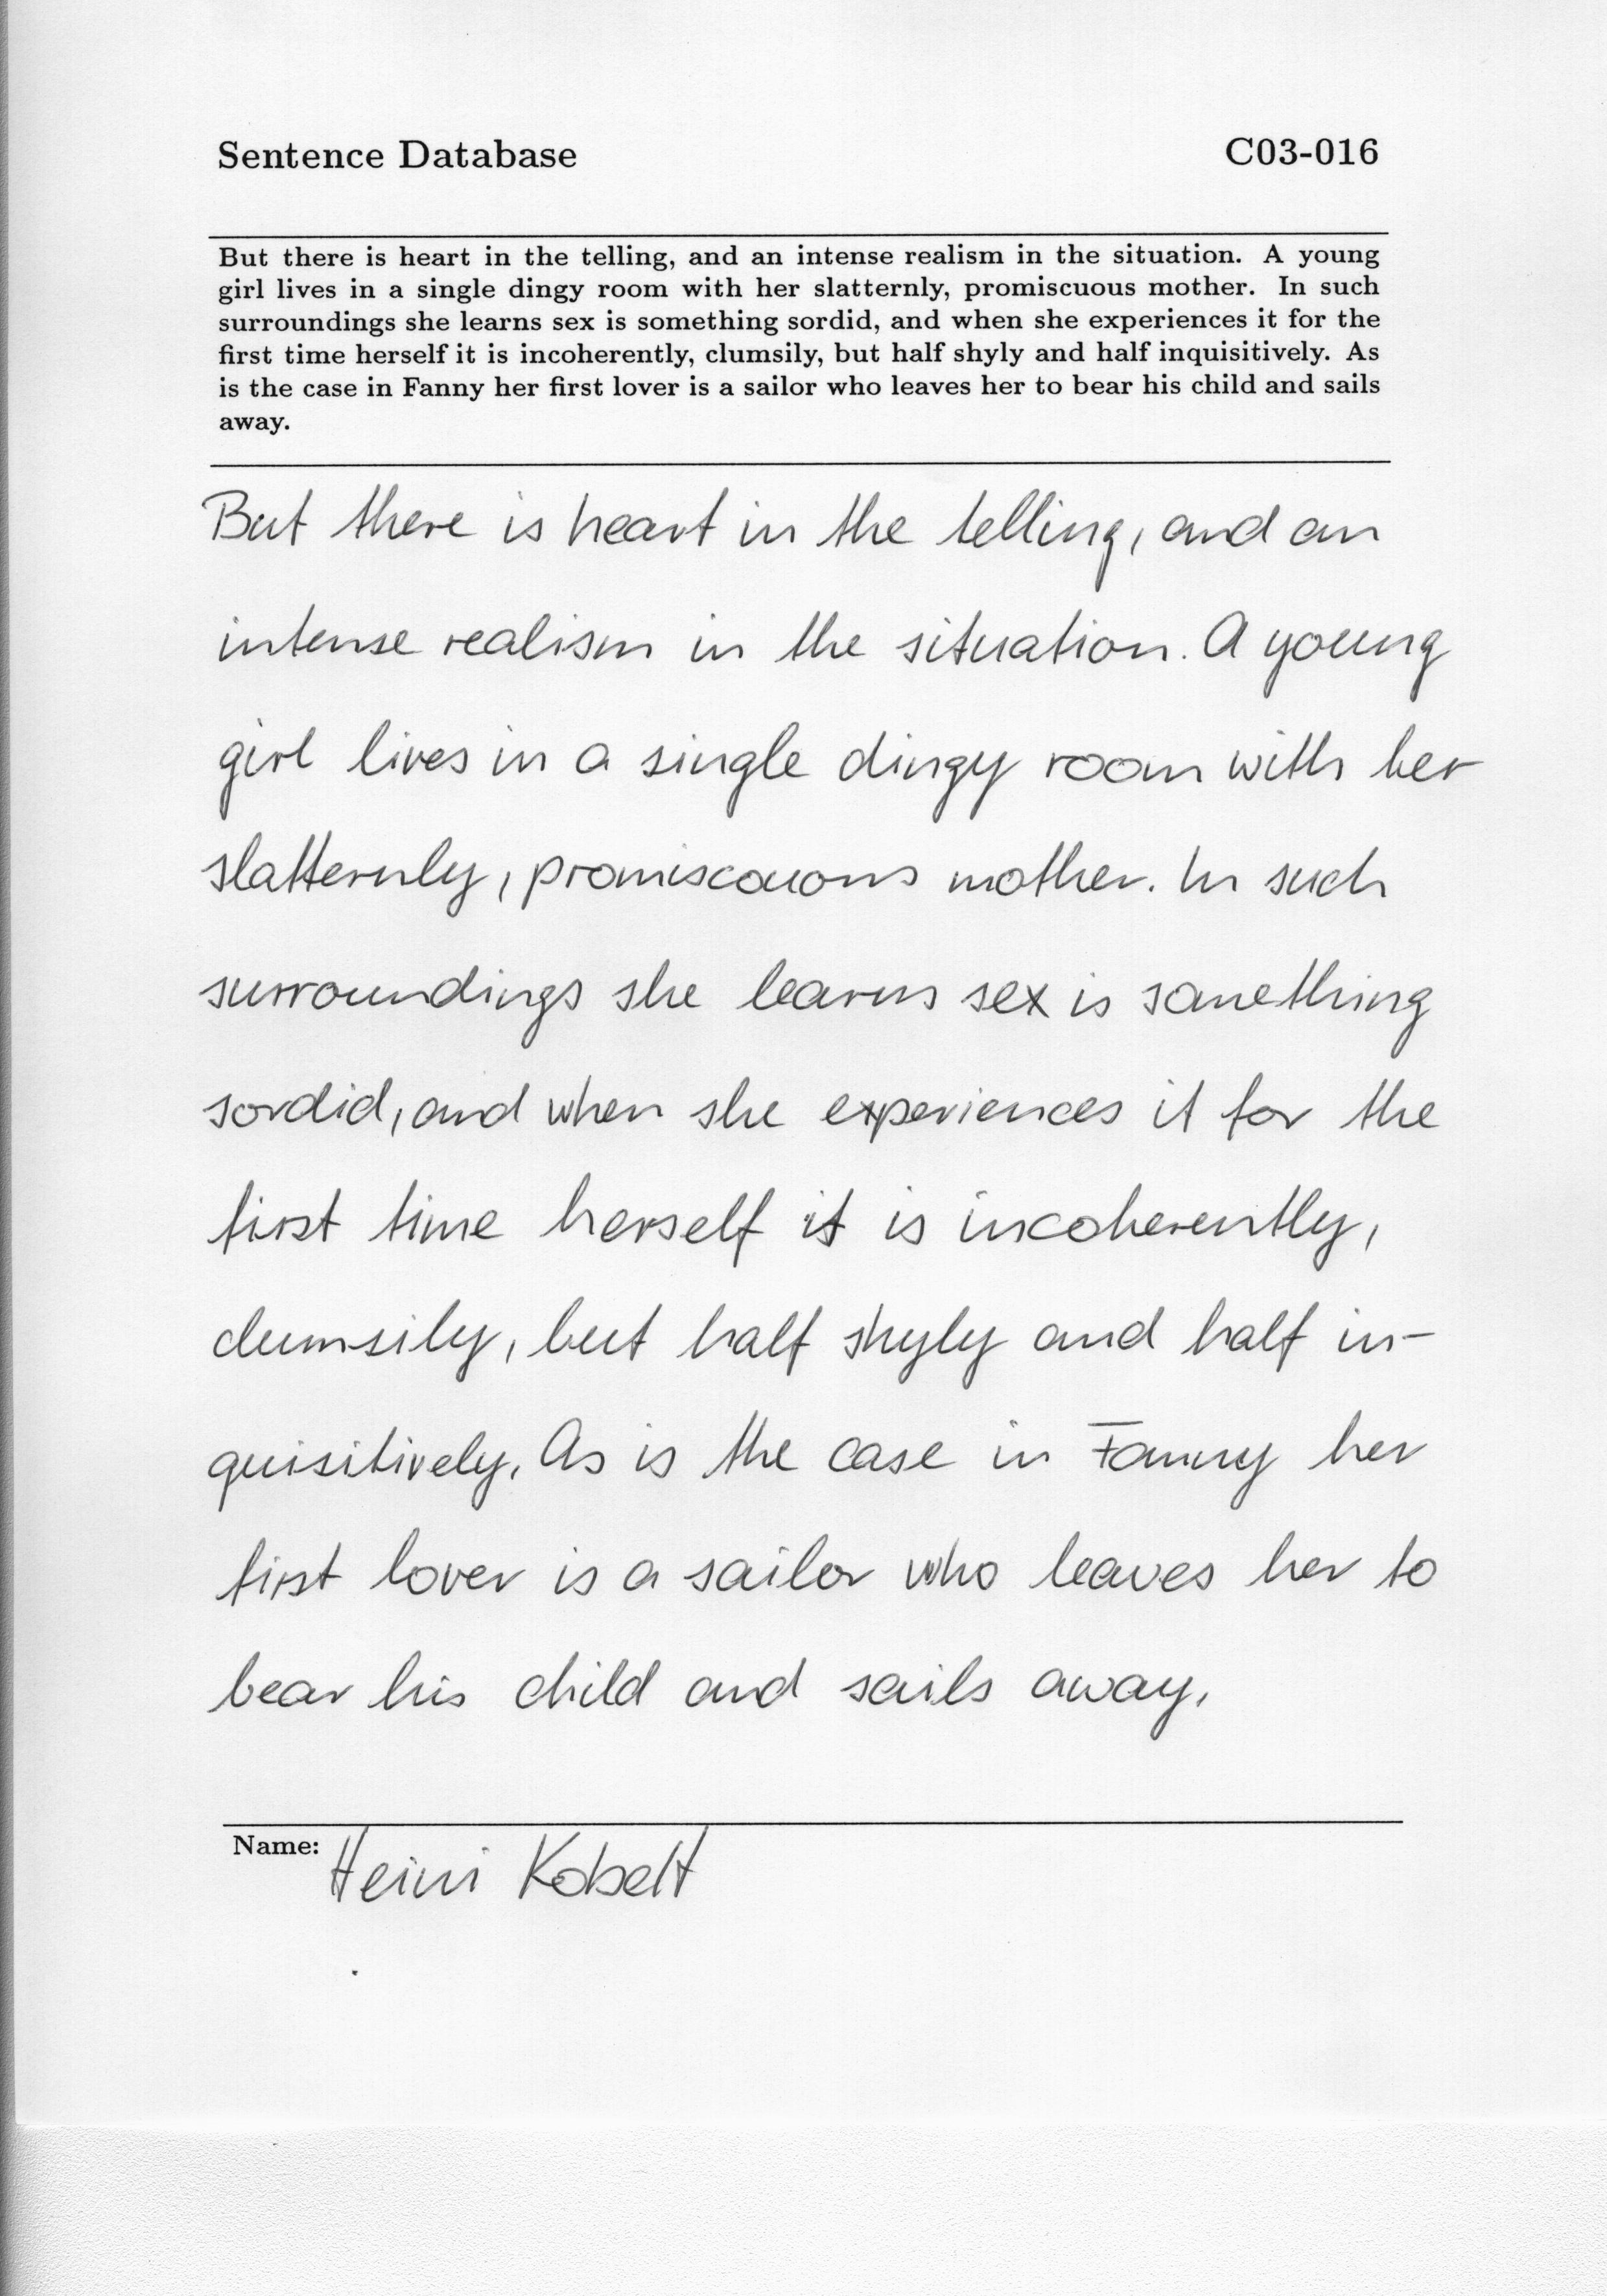 Sentence Database C03-016
But there is heart in the telling, and an intense realism in the situation. A young
girl lives in a single dingy room with her slatternly, promiscuous mother. In such
surroundings she learns sex is something sordid, and when she experiences it for the
first time herself it is incoherently, clumsily, but half shyly and half inquisitively. As
is the case in Fanny her first lover is a sailor who leaves her to bear his child and sails
away.
But there is heart in the telling, and an
intense realism in the situation. A young
girl lives in a single dingy room with her
slatternly, promiscouous mother. In such
surroundings she learns sex is something
sordid, and when she experiences it for the
first time herself it is incoherently,
clumsily, but half shyly and half in-
quisitively. As is the case in Fanny her
first lover is a sailor who leaves her to
bear his child and sails away.
Name: Heini Kobelt